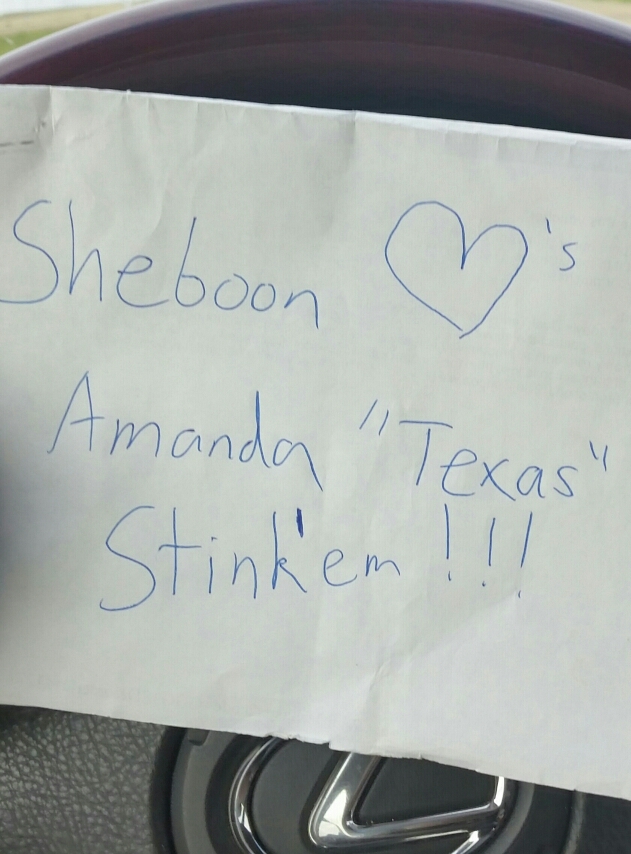 Sheboon ♡'s
Amanda "Texas"
Stink'em !!!